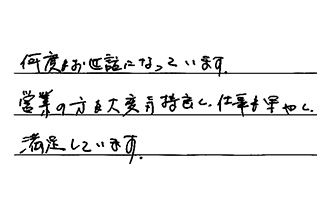 何度もお世話になっています。
営業の方も大変気持良く、仕事も早やく、
満足しています。